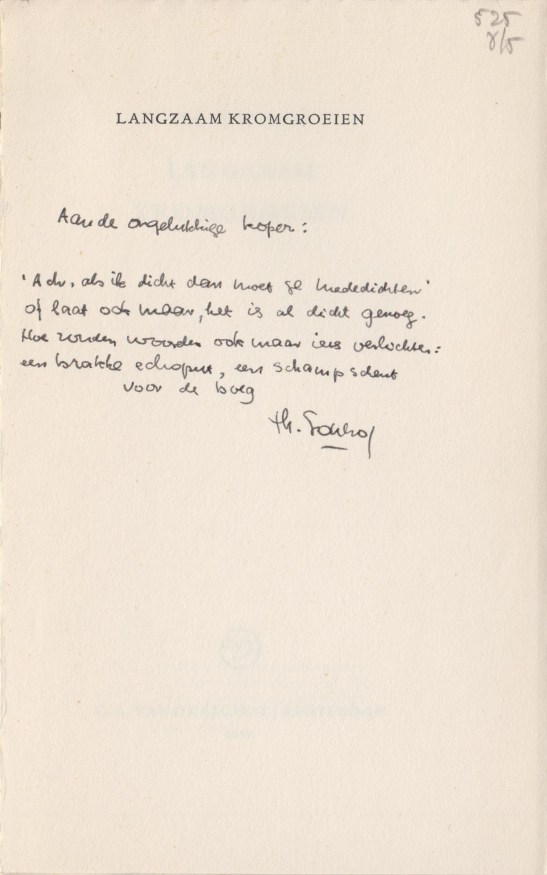 525
8/5
LANGZAAM KROMGROEIEN
Aan de ongelukkige koper:
'Ach, als ik dicht dan moet ge mededichten'
of laat ook maar, het is al dicht genoeg.
Hoe zouden woorden ook maar iets verlichten:
een brakke echoput, een schampscheut
voor de boeg
th. Sontrop